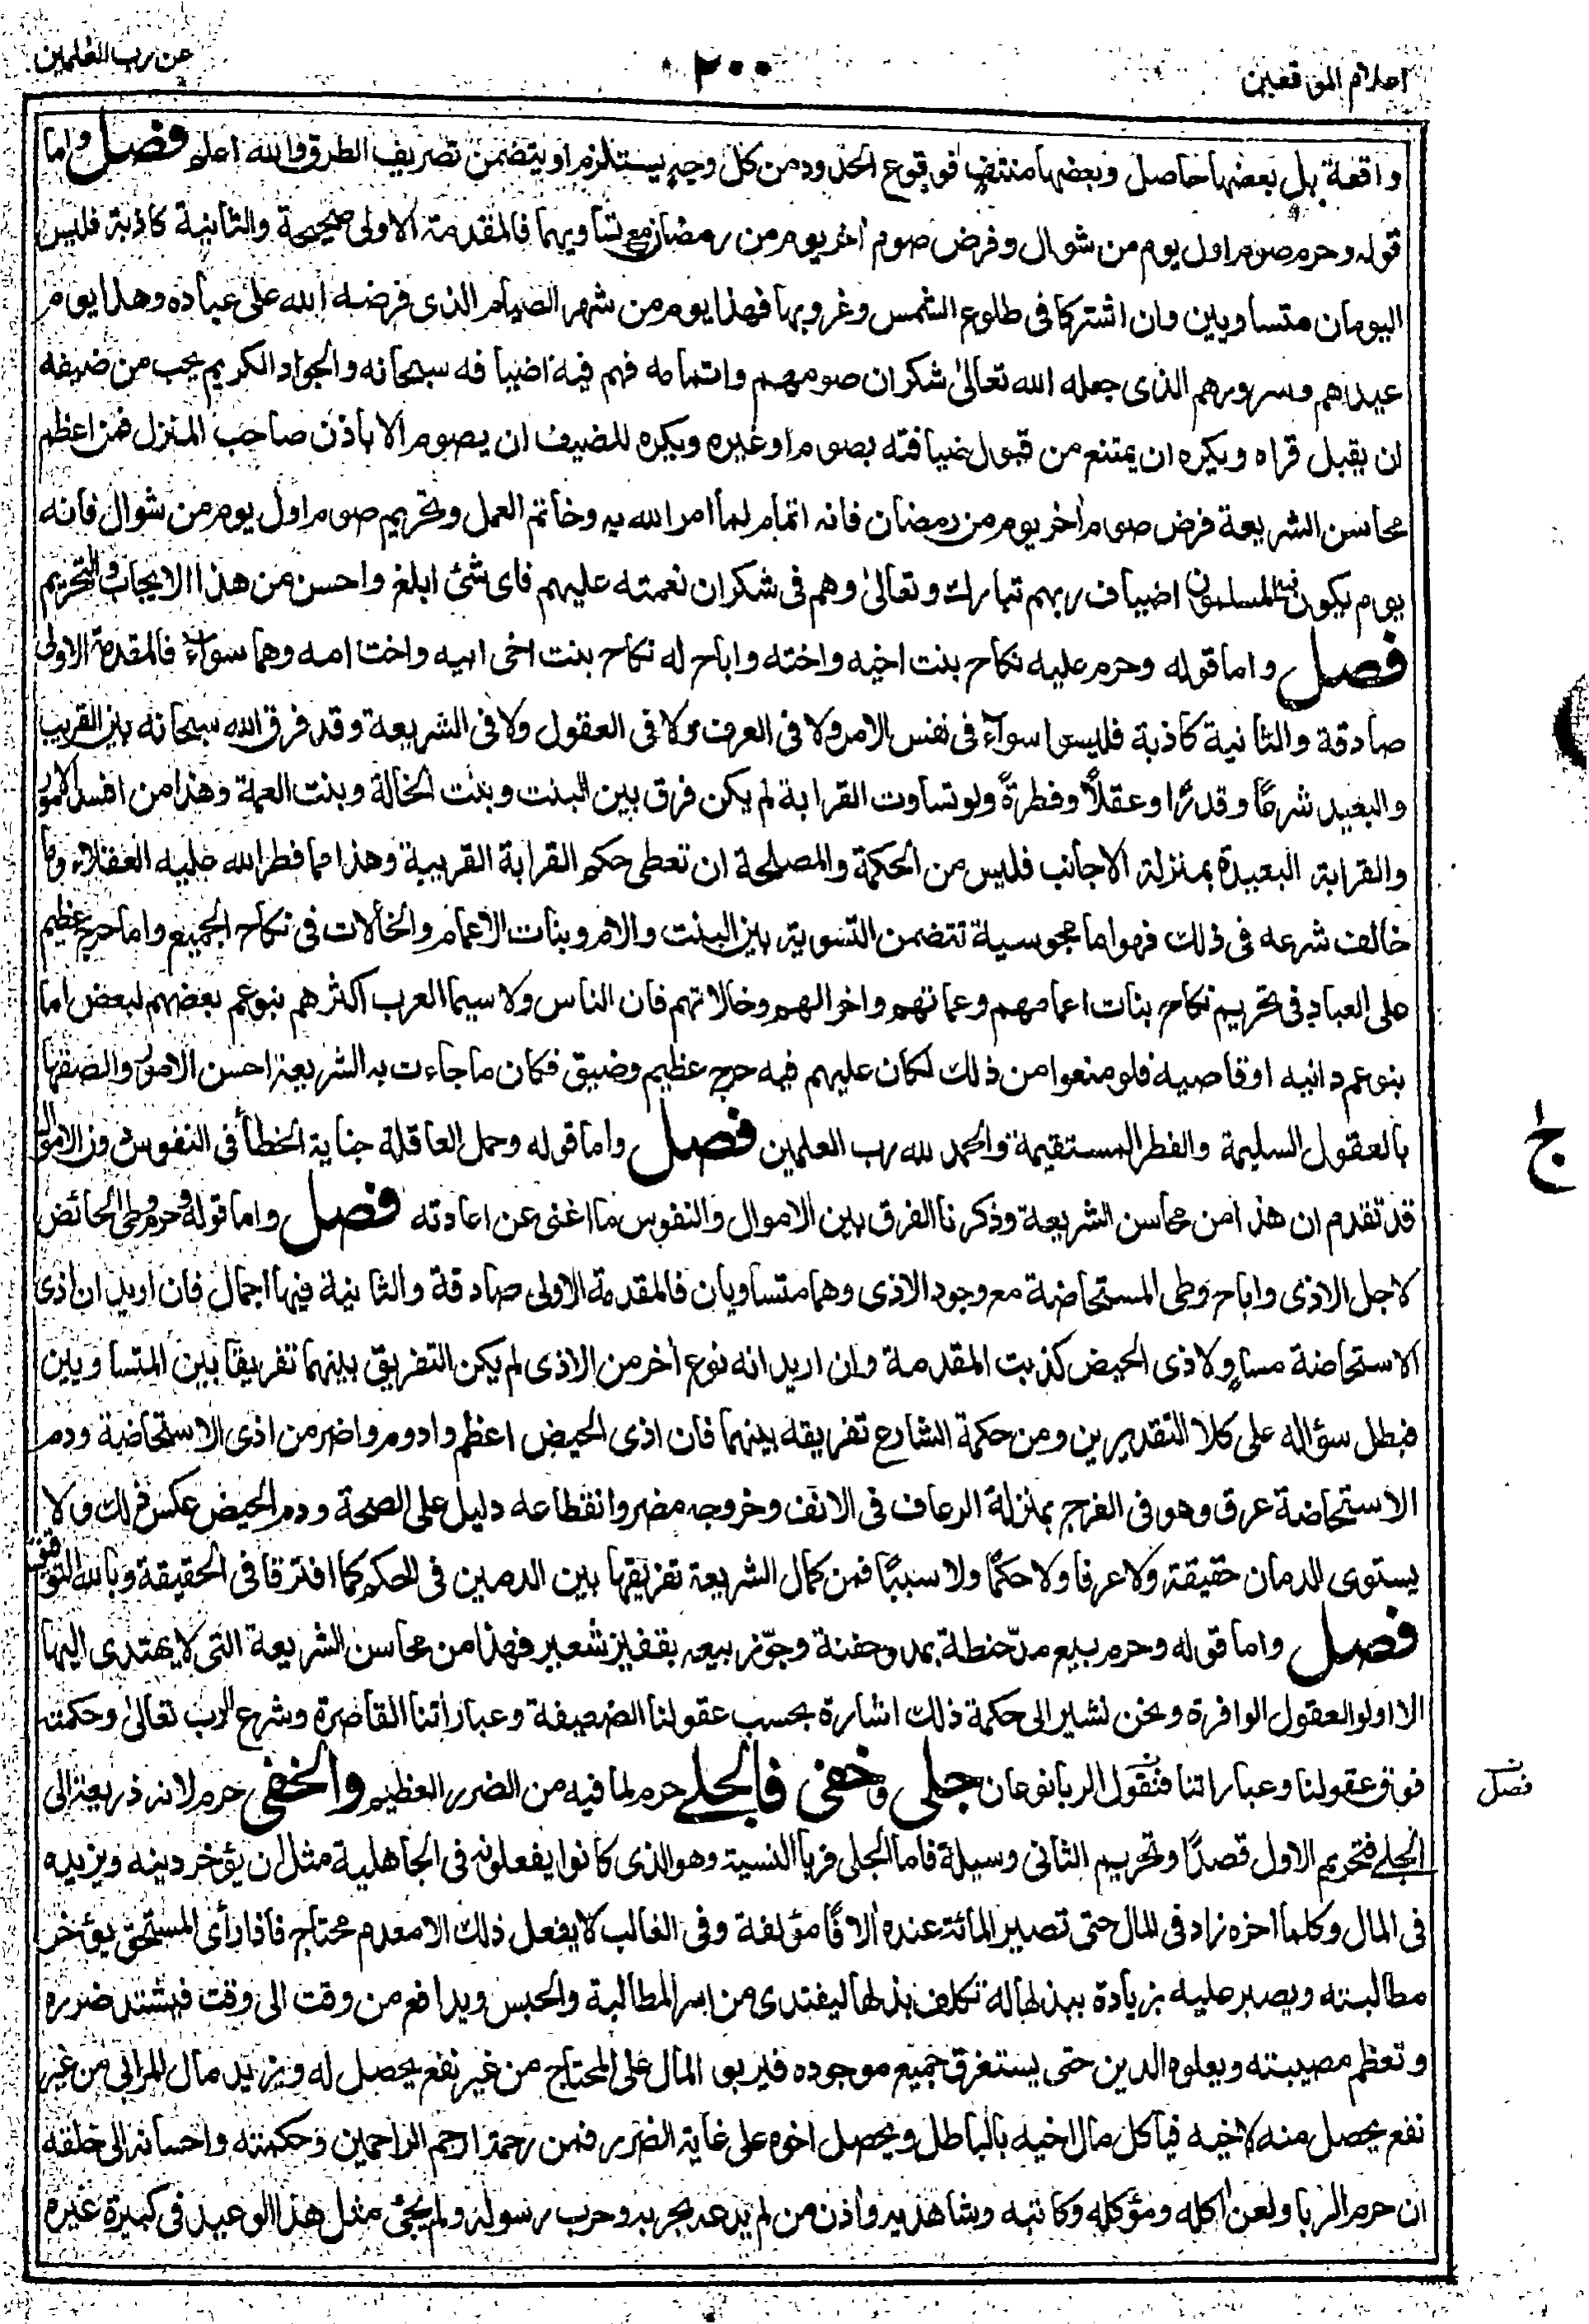 اعلام الموقعين
٢٠٠
عن رب العلمين
واقعة بل بعضها حاصل وبعضها منتف فوقوع الحدود من كل وجه يستلزم او يتضمن تصريف الطرق والله اعلم فصل واما
قوله وحرم صوم اول يوم من شوال وفرض صوم اخر يوم من رمضان مع تساويهما فالمقدمة الاولى صحيحة والثانية كاذبة فليس
اليومان متساويين وان اشتركا فى طلوع الشمس وغروبها فهذا يوم من شهر الصيام الذى فرضه الله على عباده وهذا يوم
عيدهم وسرورهم الذى جعله الله تعالىٰ شكران صومهم واتمامه فهم فيه اضيافه سبحانه والجواد الكريم يحب من ضيفه
ان يقبل قراه ويكره ان يمتنع من قبول ضيافته بصوم او غيره ويكره للضيف ان يصوم الا باذن صاحب المنزل فمن اعظم
محاسن الشريعة فرض صوم اخر يوم من رمضان فانه اتمام لما امر الله به وخاتم العمل وتحريم صوم اول يوم من شوال فانه
يوم يكون فيه المسلمون اضياف ربهم تبارك وتعالىٰ وهم فى شكران نعمته عليهم فاى شئ ابلغ واحسن من هذا الايجاب والتحريم
فصل واما قوله وحرم عليه نكاح بنت اخيه واخته واباح له نكاح بنت اخى ابيه واخت امه وهما سواء فالمقدمة الاولى
صادقة والثانية كاذبة فليسوا سواء فى نفس الامر ولا فى العرف ولا فى العقول ولا فى الشريعة وقد فرق الله سبحانه بين القريب
والبعيد شرعًا وقدرًا وعقلاً وفطرةً ولو تساوت القرابة لم يكن فرق بين البنت وبنت الخالة وبنت العمة وهذا من افسد الامور
والقرابة البعيدة بمنزلة الاجانب فليس من الحكمة والمصلحة ان تعطى حكم القرابة القريبة وهذا مما فطر الله عليه العقلاء وما
خالف شرعه فى ذلك فهو اما مجوسية تتضمن التسوية بين البنت والام وبنات الاعمام والخالات فى نكاح الجميع واما حرج عظيم
على العباد فى تحريم نكاح بنات اعمامهم وعماتهم واخوالهم وخالاتهم فان الناس ولا سيما العرب اكثرهم بنو عم بعضهم لبعض اما
بنو عم دانيه او قاصيه فلو منعوا من ذلك لكان عليهم فيه حرج عظيم وضيق فكان ما جاءت به الشريعة احسن الامور والصقها
بالعقول السليمة والفطر المستقيمة والحمد لله رب العلمين فصل واما قوله وحمل العاقلة جناية الخطأ فى النفوس دون الاموال
قد تقدم ان هذا من محاسن الشريعة وذكرنا الفرق بين الاموال والنفوس ما اغنى عن اعادته فصل واما قوله وحرم وطى الحائض
لاجل الاذى واباح وطى المستحاضة مع وجود الاذى وهما متساويان فالمقدمة الاولى صادقة والثانية فيها اجمال فان اريد ان اذى
الاستحاضة مساوٍ لاذى الحيض كذبت المقدمة وان اريد انه نوع اخر من الاذى لم يكن التفريق بينهما تفريقًا بين المتساويين
فبطل سؤاله على كلا التقديرين ومن حكمة الشارع تفريقه بينهما فان اذى الحيض اعظم وادوم واضر من اذى الاستحاضة ودم
الاستحاضة عرق وهو فى الفرج بمنزلة الرعاف فى الانف وخروجه مضر وانقطاعه دليل على الصحة ودم الحيض عكس ذلك ولا
يستوى الدمان حقيقة ولا عرفا ولا حكمًا ولا سببًا فمن كمال الشريعة تفريقها بين الدمين فى الحكم كما افترقا فى الحقيقة وبالله التوفيق
فصل واما قوله وحرم بيع مدّ حنطة بمد وحفنة وجوّز بيعه بقفيز شعير فهذا من محاسن الشريعة التى لا يهتدى اليها
الا اولو العقول الوافرة ونحن نشير الى حكمة ذلك اشارة بحسب عقولنا الضعيفة وعباراتنا القاصرة وشرع الرب تعالىٰ وحكمته
فوق عقولنا وعباراتنا فنقول الربا نوعان جلى وخفى فالجلى حرم لما فيه من الضرر العظيم والخفى حرم لانه ذريعة الى
فصل
الجلى فتحريم الاول قصدًا وتحريم الثانى وسيلة فاما الجلى فربا النسية وهو الذى كانوا يفعلونه فى الجاهلية مثل ان يؤخر دينه ويزيده
فى المال وكلما اخره زاد فى المال حتى تصير المائة عنده الافًا مؤلفة وفى الغالب لا يفعل ذلك الا معدم محتاج فاذا رأى المستحق يؤخر
مطالبته ويصبر عليه بزيادة يبذلها له تكلف بذلها ليفتدى من اسر المطالبة والحبس ويدافع من وقت الى وقت فيشتد ضرره
وتعظم مصيبته ويعلوه الدين حتى يستغرق جميع موجوده فيربو المال على المحتاج من غير نفع يحصل له ويزيد مال المرابى من غير
نفع يحصل منه لاخيه فياكل مال اخيه بالباطل ويحصل اخوه على غاية الضرر فمن رحمة ارحم الراحمين وحكمته واحسانه الى خلقه
ان حرم الربا ولعن اكله ومؤكله وكاتبه وشاهديه واذن من لم يدعه بحربه وحرب رسوله ولم يجئ مثل هذا الوعيد فى كبيرة غيره
ج